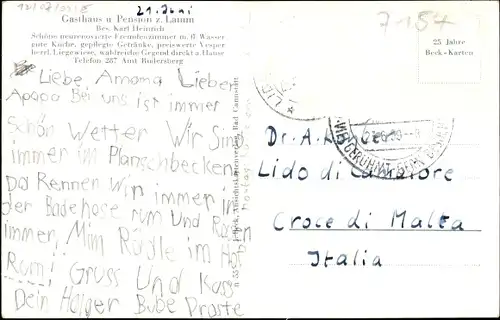 12/07/0318
21. Juni
7154
Gasthaus u Pension z. Lamm
Bes. Karl Heinrich
Schöne neurenovierte Fremdenzimmer m. fl Wasser
gute Küche, gepflegte Getränke, preiswerte Vesper
herrl. Liegewiese, waldreiche Gegend direkt a. Hause
Telefon 287 Amt Rudersberg
25 Jahre
Beck-Karten
Liebe Amama Lieber
Apapa Bei uns ist immer
schön Wetter Wir Sind
immer im Planschbecken
Da Rennen Wir immer in
der Badehose rum Und
immer Mim im Hof
Rum! Gruss Und Kuss
Dein Holger Bube Droste
Beck, Ansichtskartenverlag, Bad Cannstatt
Dr. A.
Lido di Camaiore
Croce di Malta
Italia